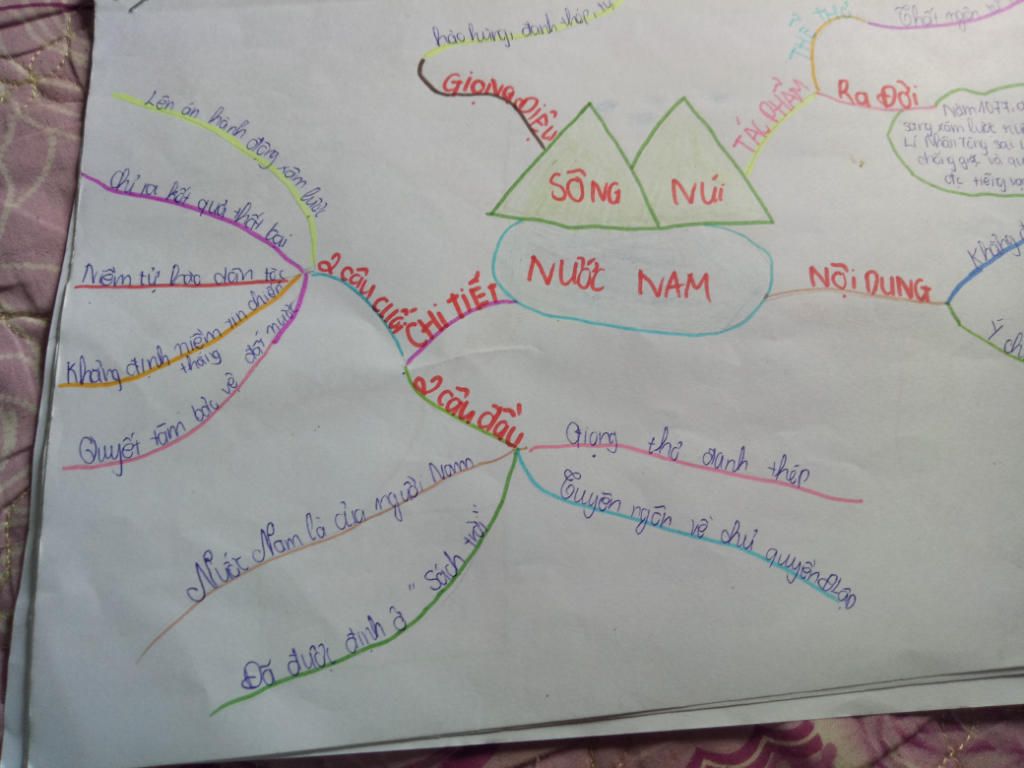 SÔNG NÚI
NƯỚT NAM
GIỌNG ĐIỆU
hào hùng, đanh thép,
TÁC PHẨM
THỂ THƠ
Thất ngôn
Ra ĐỜI
Năm 1077,
sang xâm lược
Lí Nhân Tông sai
chống giặc và
NỘI DUNG
Khẳng
Ý
CHI TIẾT
2 câu cuối
Lên án hành động xâm lược
Chỉ ra kết quả thất bại
Niềm tự hào dân tộc
Khẳng định niềm tin chiến
thắng
Quyết tâm bảo vệ đất nước
2 câu đầu
Giọng thơ đanh thép
Tuyên ngôn về chủ quyền Đlập
Nước Nam là của người Nam
Đã được định ở "Sách trời"